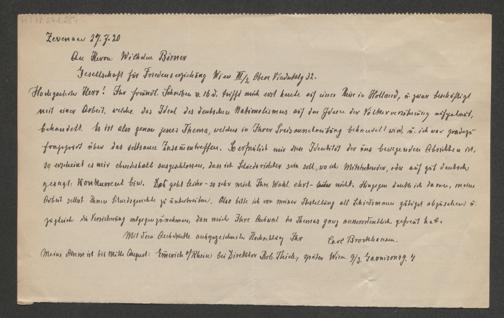 Zevenaar 27.7.20
An Herrn Wilhelm Börner
Gesellschaft für Friedenserziehung Wien III/2 Obere Viaduktg. 32.
Hochgeehrter Herr! Ihr freundl. Schreiben v. 16 d. trifft mich erst heute auf einer Reise in Holland, u. zwar beschäftigt
mit einer Arbeit, welche das Ideal des deutschen Nationalismus auf den Ideen der Völkerversöhnung aufgebaut,
behandelt. Es ist also genau jenes Thema, welches in Ihrer Preisausschreibung behandelt wird, u. ich war
über das seltsame Zusammentreffen. So erfreulich mir diese Identität der uns bewegenden Absichten ist,
so erscheint es mir ehrenhalber ausgeschlossen, dass ich Schiedsrichter sein soll, wo ich Mitstrebender, oder auf gut deutsch
gesagt: Konkurrent bin. Das geht leider - so sehr mich Ihre Wahl ehrt - nicht. Hingegen denke ich daran, meine
Arbeit selbst Ihrem Schiedsgerichte zu unterbreiten. Also bitte ich von meiner Bestellung als Schiedsmann gütigst abzusehen u.
zugleich die Versicherung entgegenzunehmen, dass mich Ihre Auswahl des Themas ganz ausserordentlich gefreut hat.
Mit dem Ausdrucke ausgezeichneter Hochachtung Ihr Carl Brockhausen.
Meine Adresse ist bis Mitte August: Emmerich a/Rhein bei Direktor Thiele, später Wien 9/2 Garnisong. 7